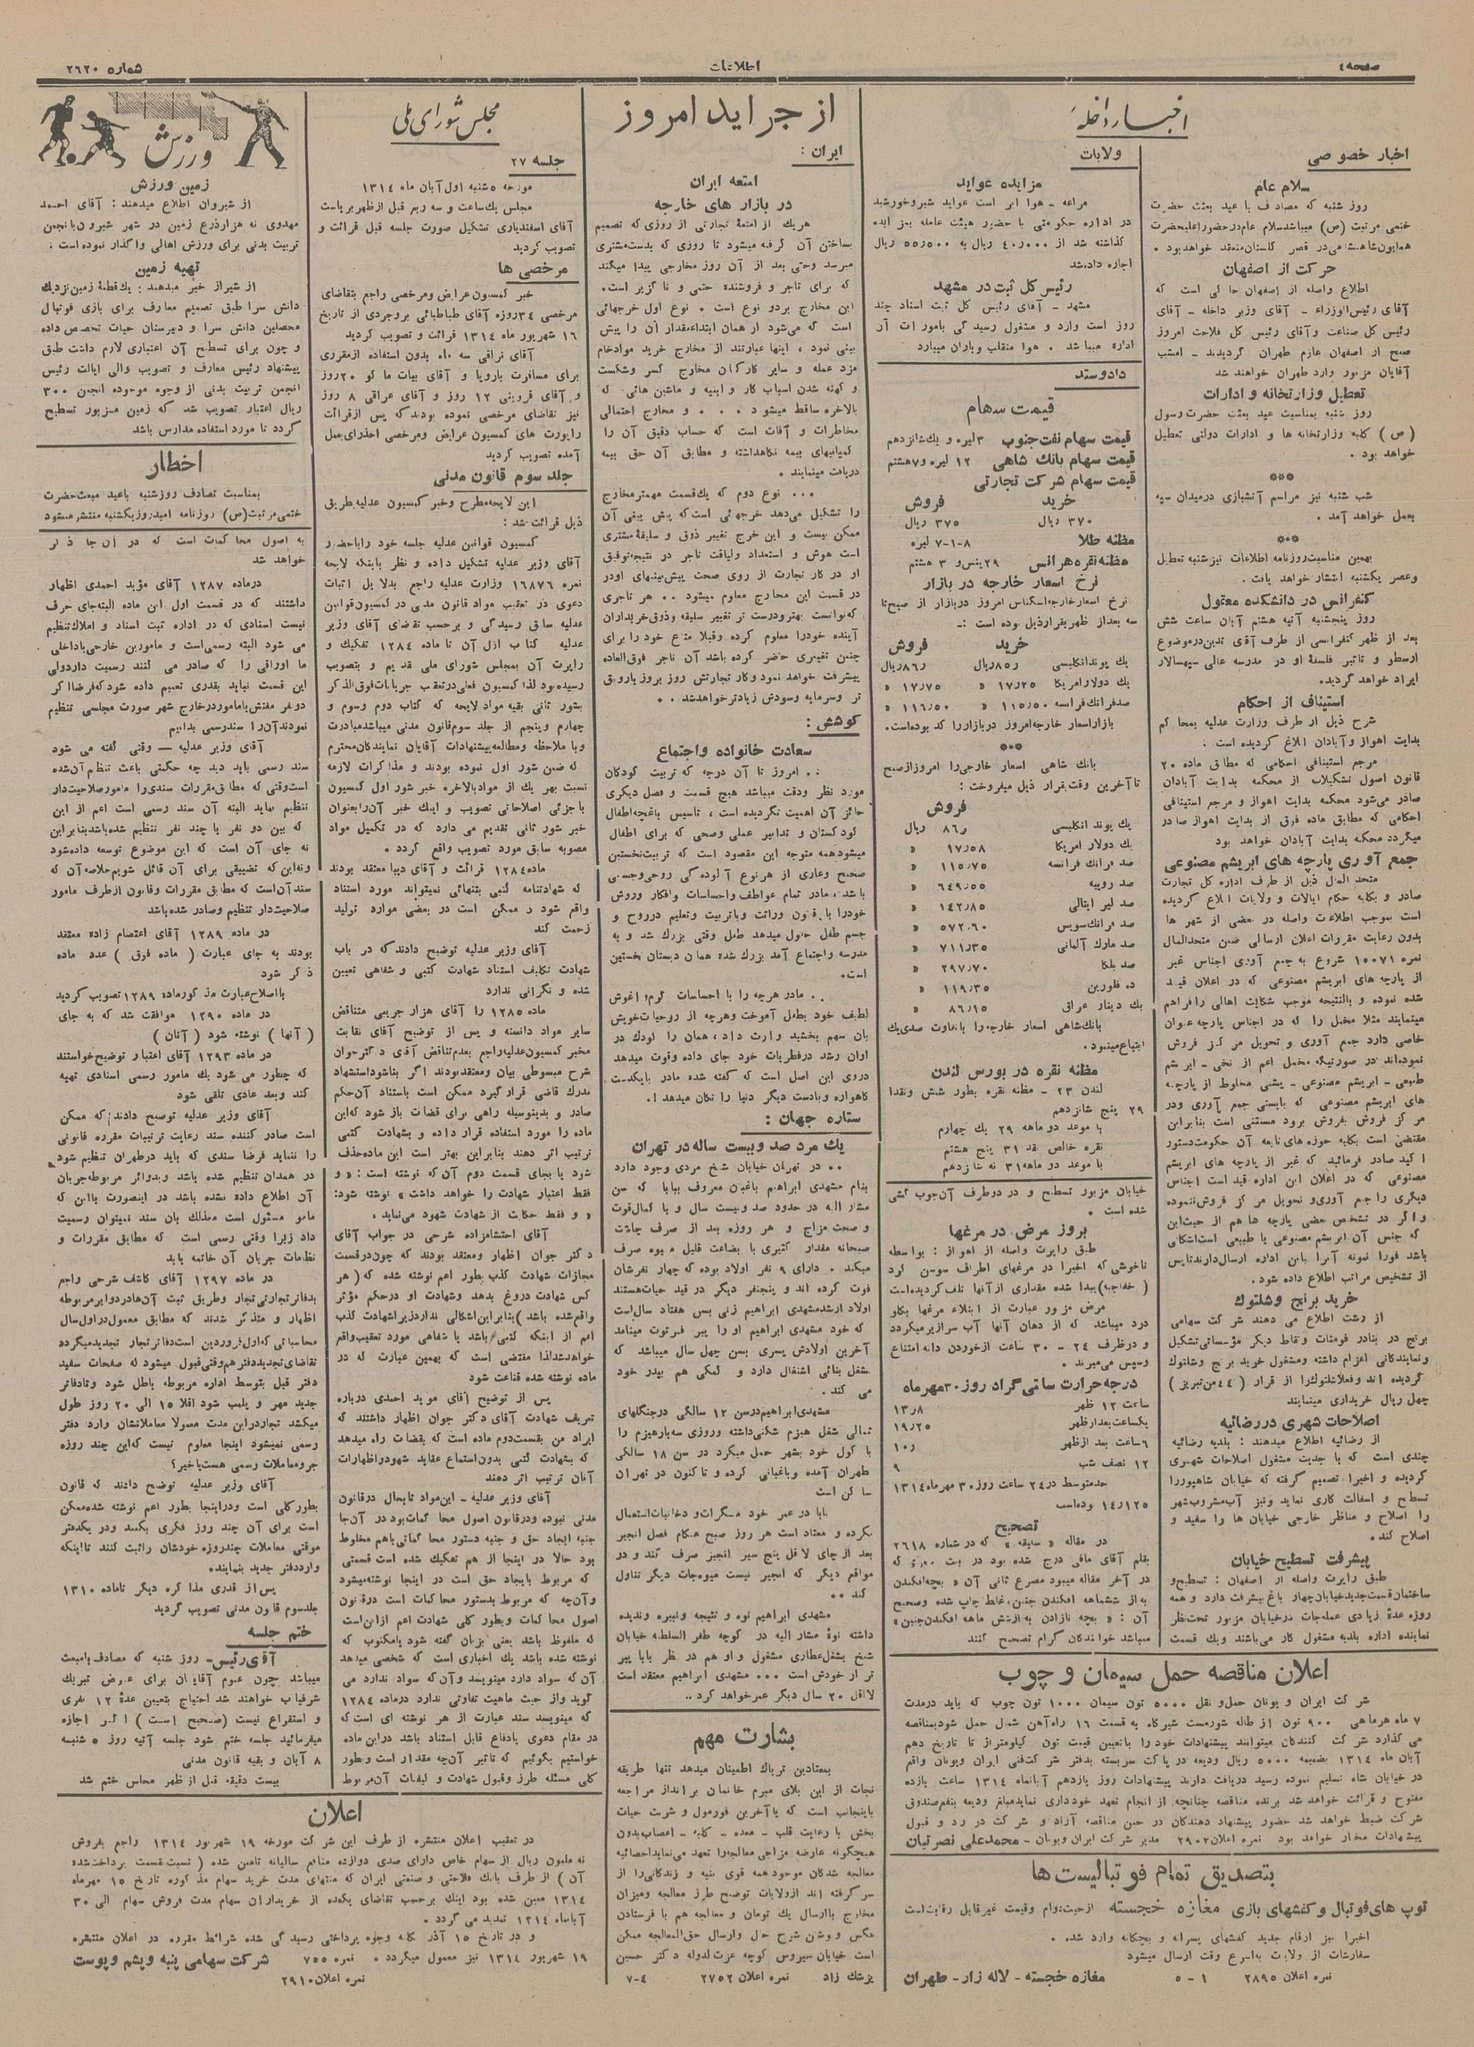 صفحه ٤
اطلاعات
شماره ٢٦٢٠
اخبار داخله
اخبار خصوصی
سلام عام
روز شنبه که مصادف با عید بعثت حضرت
ختمی مرتبت (ص) میباشد سلام عام در حضور اعلیحضرت
همایون شاهنشاهی در قصر گلستان منعقد خواهد بود .
حرکت از اصفهان
اطلاع واصله از اصفهان حاکی است که
آقای رئیس الوزراء - آقای وزیر داخله - آقای
رئیس کل صناعت و آقای رئیس کل فلاحت امروز
صبح از اصفهان عازم طهران گردیدند - امشب
آقایان مزبور وارد طهران خواهند شد
تعطیل وزارتخانه و ادارات
روز شنبه بمناسبت عید بعثت حضرت رسول
(ص) کلیه وزارتخانه ها و ادارات دولتی تعطیل
خواهد بود .
***
شب شنبه نیز مراسم آتشبازی در میدان سپه
بعمل خواهد آمد .
***
بهمین مناسبت روزنامه اطلاعات نیز شنبه تعطیل
وعصر یکشنبه انتشار خواهد یافت .
کنفرانس در دانشکده معقول
روز پنجشنبه آتیه هشتم آبان ساعت شش
بعد از ظهر کنفرانسی از طرف آقای تدین در موضوع
ارسطو و تاثیر فلسفهٔ او در مدرسه عالی سپهسالار
ایراد خواهد گردید.
استیناف از احکام
شرح ذیل از طرف وزارت عدلیه بمحاکم
بدایت اهواز و آبادان ابلاغ گردیده است .
مرجع استینافی احکامی که مطابق ماده ٢٠
قانون اصول تشکیلات از محکمه بدایت آبادان
صادر می‌شود محکمه بدایت اهواز و مرجع استینافی
احکامی که مطابق ماده فوق از بدایت اهواز صادر
میگردد محکمه بدایت آبادان خواهد بود
جمع آوری پارچه های ابریشم مصنوعی
متحد المال ذیل از طرف اداره کل تجارت
صادر و بکلیه حکام ایالات و ولایات ابلاغ گردیده
است بموجب اطلاعات واصله در بعضی از شهر ها
بدون رعایت مقررات اعلان ارسالی ضمن متحدالمال
نمره ١٥٠٧١ شروع به جمع آوری اجناس غیر
از پارچه های ابریشم مصنوعی که در اعلان قید
شده نموده و بالنتیجه موجب شکایت اهالی را فراهم
مینمایند مثلا مخمل را که در اجناس پارچه عنوان
خاصی دارد جمع آوری و تحویل مرکز فروش
نموده‌اند در صورتیکه مخمل اعم از نخی - ابریشم
طبیعی - ابریشم مصنوعی - پشمی مخلوط از پارچه
های ابریشم مصنوعی که بایستی جمع آوری و در
مرکز فروش بفروش برود مستثنی است بنابراین
مقتضی است بکلیه حوزه های تابعه آن حکومت دستور
اکید صادر فرمائید که غیر از پارچه های ابریشم
مصنوعی که در اعلان این اداره قید است اجناس
دیگری را جمع آوری و تحویل مرکز فروش ننموده
و اگر در تشخیص بعضی پارچه ها هم از حیث این
که جنس آن ابریشم مصنوعی یا طبیعی است اشکالی
باشد فورا نمونه آنرا باین اداره ارسال دارند تا پس
از تشخیص مراتب اطلاع داده شود.
خرید برنج و شلتوك
از رشت اطلاع می دهند شرکت سهامی
برنج در بنادر فومنات و نقاط دیگر مؤسساتی تشکیل
و نمایندگانی اعزام داشته و مشغول خرید برنج و شلتوك
گردیده اند و فعلا شلتوك را از قرار (٤٤ من تبریز)
چهل ریال خریداری مینمایند
اصلاحات شهری در رضائیه
از رضائیه اطلاع میدهند : بلدیه رضائیه
چندی است که با جدیت مشغول اصلاحات شهری
گردیده و اخیرا تصمیم گرفته که خیابان شاهپور را
تسطیح و اسفالت کاری نماید و نیز آب مشروب شهر
را اصلاح و مناظر خارجی خیابان ها را سفید و
اصلاح کند.
پیشرفت تسطیح خیابان
طبق راپرت واصله از اصفهان : تسطیح و
ساختمان قسمت جدید خیابان چهار باغ پیشرفت دارد و همه
روزه عدهٔ زیادی عمله جات در خیابان مزبور تحت نظر
نماینده اداره بلدیه مشغول کار می‌باشند و یك قسمت
ولایات
مزایده عواید
مراغه - هوا ابر است عواید شیر و خورشید
در اداره حکومتی با حضور هیئت عامله بمزایده
گذاشته شد از ٤٠٫٠٠٠ ریال به ٥٥٫٥٠٠ ریال
اجاره داده شد
رئیس کل ثبت در مشهد
مشهد - آقای رئیس کل ثبت اسناد چند
روز است وارد و مشغول رسیدگی بامورات آن
اداره میباشد . هوا منقلب و باران میبارد
دادوستد
قیمت سهام
قیمت سهام نفت جنوب ٣ لیره و یك شانزدهم
قیمت سهام بانك شاهی ١٢ لیره و ٧ هشتم
قیمت سهام شرکت تجارتی
خرید فروش
٣٧٠ ریال ٣٧٥ ریال
مظنه طلا ٨-١-٧ لیره
مظنه نقره هر انس ٢٩ پنس و ٣ هشتم
نرخ اسعار خارجه در بازار
نرخ اسعار خارجه اسکناس امروز در بازار از صبح تا
سه بعد از ظهر بقرار ذیل بوده است :-
خرید فروش
یك پوند انگلیسی ٨٥٫ ریال ٨٦٫ ریال
یك دولار امریکا ١٧٫٢٥ « ١٧٫٧٥ «
صد فرانك فرانسه ١١٥٫٥٠ « ١١٦٫٥٠ «
بازار اسعار خارجه امروز در بازار را کد بوده‌است.
***
بانك شاهی اسعار خارجی را امروز از صبح
تا آخرین وقت بقرار ذیل میفروخت :
فروش
یك پوند انگلیسی ٨٦٫ ریال
یك دولار امریکا ١٧٫٥٨ «
صد فرانك فرانسه ١١٥٫٧٥ «
صد روپیه ٦٤٩٫٥٥ «
صد لیر ایتالی ١٤٢٫٨٥ «
صد فرانك سویس ٥٧٢٫٦٠ «
صد مارك آلمانی ٧١١٫٣٥ «
صد بلگا ٢٩٧٫٧٠ «
ده فلورین ١١٩٫٣٥ «
یك دینار عراق ٨٦٫١٥ «
بانك شاهی اسعار خارجه را بتفاوت صدی یك
ابتیاع مینمود.
مظنه نقره در بورس لندن
لندن ٢٣ - مظنه نقره بطور شمش و نقدا
٢٩ پنج شانزدهم
با موعد دو ماهه ٢٩ یك چهارم
نقره خالص نقد ٣١ پنج هشتم
با موعد دو ماهه ٣١ نه شانزدهم
خیابان مزبور تسطیح و در دو طرف آن جوب کشی
شده است .
بروز مرض در مرغها
طبق راپرت واصله از اهواز : بواسطه
ناخوشی که اخیرا در مرغهای اطراف سوسن گرد
(خفاجیه) پیدا شده مقداری از آنها تلف گردیده‌است
مرض مزبور عبارت از ابتلاء مرغها بگلو
درد میباشد که از دهان آنها آب سرازیر میگردد
و در ظرف ٢٤ - ٣٠ ساعت از خوردن دانه امتناع
و سپس می‌میرند .
درجه حرارت سانتی گراد روز ٣٠ مهرماه
ساعت ١٢ ظهر ١٣٫٨
یکساعت بعد از ظهر ١٩٫٢٥
٦ ساعت بعد از ظهر ١٠٫
١٢ نصف شب ٩
حد متوسط در ٢٤ ساعت روز ٣٠ مهرماه ١٣١٤
١٤٫١٢٥ بوده‌است
تصحیح
در مقاله « سابقه » که در شماره ٢٦١٨
بقلم آقای مافی درج شده بود در بیت که
در آخر مقاله میبود مصرع ثانی آن « بچه افکندن
به از ششماهه افکندن جنین» غلط چاپ شده و صحیح
آن : « بچه نازادن به از شش ماهه افکندن جنین »
میباشد خوانندگان گرام تصحیح کنند
اعلان مناقصه حمل سیمان و چوب
شرکت ایران و یونان حمل و نقل ٥٠٠٠ تون سیمان ١٠٠٠ تون چوب که باید در مدت
٧ ماه هر ماهی ٩٠٠ تون از طاله شورمست شیرگاه به قسمت ١٦ راه آهن شمال حمل شود بمناقصه
می گذارد شرکت کنندگان میتوانند پیشنهادات خود را با تعیین قیمت تون کیلومتر از تاریخ دهم
آبان ماه ١٣١٤ بضمیمه ٥٠٠٠ ریال ودیعه در پاکت سربسته بدفتر شرکت فنی ایران و یونان واقع
در خیابان شاه تسلیم نموده رسید دریافت دارند پیشنهادات روز یازدهم آبانماه ١٣١٤ ساعت یازده
مفتوح و قرائت خواهد شد برنده مناقصه چنانچه از انجام تعهد خودداری نماید مبلغ ودیعه بنفع صندوق
شرکت ضبط خواهد شد حضور پیشنهاد دهندگان در حین مناقصه آزاد و شرکت در رد و قبول
پیشنهادات مختار خواهد بود نمره اعلان ٢٩٠٢ مدیر شرکت ایران و یونان - محمدعلی نصرتیان
بتصدیق تمام فوتبالیست ها
توپ های فوتبال و کفشهای بازی مغازه خجسته از حیث دوام و قیمت غیر قابل رقابت است
اخیرا نیز ارقام جدید کفشهای پسرانه و بچگانه وارد شده .
سفارشات از ولایت به اسرع وقت ارسال میشود
نمره اعلان ٢٨٩٥ ١-٥ مغازه خجسته - لاله زار - طهران
از جراید امروز
ایران :
امتعه ایران
در بازار های خارجه
هریك از امتعهٔ تجارتی از روزی که تصمیم
بساختن آن گرفته میشود تا روزی که بدست مشتری
میرسد وحتی بعد از آن روز مخارجی پیدا میکند
که برای تاجر و فروشنده حتمی و ناگزیر است.
این مخارج بردو نوع است . نوع اول خرجهائی
است که می‌شود از همان ابتداء مقدار آن را پیش
بینی نمود ، اینها عبارتند از مخارج خرید مواد خام
مزد عمله و سایر کارکنان مخارج کسر و شکست
و کهنه شدن اسباب کار و ابنیه و ماشین هائی که
بالاخره ساقط میشود . . . و مخارج احتمالی
مخاطرات و آفات است که حساب دقیق آن را
کمپانیهای بیمه نگاهداشته و مطابق آن حق بیمه
دریافت مینمایند .
... نوع دوم که یك قسمت مهمتر مخارج
را تشکیل می‌دهد خرجهائی است که پیش بینی آن
ممکن نیست و این خرج تغییر ذوق و سلیقهٔ مشتری
است هوش و استعداد ولیاقت تاجر در نتیجه توفیق
او در کار تجارت از روی صحت پیش‌بینیهای او در
در قسمت این مخارج معلوم میشود .. هر تاجری
که توانست بهتر و درست تر تغییر سلیقه و ذوق خریداران
آینده خود را معلوم کرده و قبلا متاع خود را برای
چنین تغییری حاضر کرده باشد آن تاجر فوق العاده
پیشرفت خواهد نمود و کار تجارتش روز بروز بارونق
تر و سرمایه و سودش زیادتر خواهد شد . .
کوشش :
سعادت خانواده و اجتماع
.. امروز تا آن درجه که تربیت کودکان
مورد نظر ودقت میباشد هیچ قسمت و فصل دیگری
حائز آن اهمیت نگردیده است ، تاسیس باغچه اطفال
کودکستان و تدابیر عملی وصحی که برای اطفال
میشود همه متوجه این مقصود است که تربیت نخستین
صحیح وعاری از هرنوع آلودگی روحی و جسمی
باشد . مادر تمام عواطف و احساسات و افکار و روش
خود را با قانون وراثت و با تربیت و تعلیم در روح و
جسم طفل حلول میدهد طفل وقتی بزرك شد و به
مدرسه واجتماع آمد بزرك شده همان دبستان نخستین
است.
.. مادر هرچه را با احساسات گرم و آغوش
لطیف خود بطفل آموخت و هرچه از روحیات خویش
بان سهم بخشید وارث داد ، همان را کودك در
اوان رشد در فطریات خود جای داده و قوت میدهد
دروی این اصل است که گفته شده مادر بایکدست
گاهواره و با دست دیگر دنیا را تکان میدهد !.
ستاره جهان :
یك مرد صد و بیست ساله در تهران
.. در تهران خیابان شیخ مردی وجود دارد
بنام مشهدی ابراهیم باغبان معروف ببابا که سن
مشار الیه در حدود صد و بیست سال و با کمال قوت
و صحت مزاج و هر روزه بعد از صرف چاشت
صبحانه مقدار کثیری با بضاعت قلیل میوه صرف
میکند . دارای ٩ نفر اولاد بوده که چهار نفرشان
فوت کرده اند و پنجنفر دیگر در قید حیات هستند
اولاد ارشد مشهدی ابراهیم زنی بسن هفتاد سال است
که خود مشهدی ابراهیم او را پیر فرتوت مینامد
آخرین اولادش پسری بسن چهل سال میباشد که
بشغل بنائی اشتغال دارد و کمکی هم بپدر خود
می کند .
مشهدی ابراهیم در سن ١٢ سالگی در جنگلهای
شمالی شغل هیزم شکنی داشته و روزی سه بار هیزم را
با کول خود بشهر حمل میکرد در سن ١٨ سالگی
طهران آمده و باغبانی کرده و تا کنون در تهران
ساکن است
بابا در عمر خود مسکرات و دخانیات استعمال
نکرده و معتاد است هر روز صبح هنگام فصل انجیر
بعد از چای لااقل پنج سیر انجیر صرف کند و در
مواقع دیگر که انجیر نیست میوه‌جات دیگر تناول
کند . .
مشهدی ابراهیم نوه و نتیجه و نبیره و ندیده
داشته نوهٔ مشار الیه در کوچه ظفر السلطنه خیابان
شیخ بشغل عطاری مشغول و او هم در نظر بابا پیر
تر از خودش است ... مشهدی ابراهیم معتقد است
لااقل ٢٠ سال دیگر عمر خواهد کرد ..
بشارت مهم
بمعتادین تریاك اطمینان میدهد تنها طریقه
نجات از این بلای مبرم خانمان برانداز مراجعه
باینجانب است که با آخرین فورمول و شربت حیات
بخش با رعایت قلب - معده - کلیه - اعصاب بدون
هیچگونه عارضه مزاجی معالجه را تعهد می‌نماید احصائیه
معالجه شدگان موجود همه قوی بنیه و زندگانی را از
سر گرفته اند از ولایات توضیح طرز معالجه و میزان
مخارج با ارسال یك تومان و معالجه هم با فرستادن
عکس و روشن شرح حال و ارسال حق‌المعالجه ممکن
است خیابان سیروس کوچه عزت الدوله دکتر حسین
پزشك زاد نمره اعلان ٢٧٥٢ ٤-٧
مجلس شورای ملی
جلسه ٢٧
مورخه ٥ شنبه اول آبان ماه ١٣١٤
مجلس یك ساعت و سه ربع قبل از ظهر بریاست
آقای اسفندیاری تشکیل صورت جلسه قبل قرائت و
تصویب گردید
مرخصی ها
خبر کمسیون عرایض و مرخصی راجع بتقاضای
مرخصی ٣٤ روزه آقای طباطبائی بروجردی از تاریخ
١٦ شهریور ماه ١٣١٤ قرائت و تصویب گردید
آقای نراقی سه ماه بدون استفاده از مقرری
برای مسافرت باروپا و آقای بیات ماکو ٢٠ روز
و آقای قزوینی ١٢ روز و آقای عراقی ٨ روز
نیز تقاضای مرخصی نموده بودند که پس از قرائت
راپورت های کمسیون عرایض و مرخصی اخذ رای بعمل
آمده تصویب گردید
جلد سوم قانون مدنی
این لایحه مطرح و خبر کمسیون عدلیه بطریق
ذیل قرائت شد :
کمسیون قوانین عدلیه جلسه خود را با حضور
آقای وزیر عدلیه تشکیل داده و نظر باینکه لایحه
نمره ١٦٨٧٦ وزارت عدلیه راجع بدلایل اثبات
دعوی در تعقیب مواد قانون مدنی در کمسیون قوانین
عدلیه سابق رسیدگی و برحسب تقاضای آقای وزیر
عدلیه کتاب اول آن تا ماده ١٢٨٤ تفکیك و
راپرت آن بمجلس شورای ملی تقدیم و بتصویب
رسیده بود لذا کمسیون فعلی در تعقیب جریانات فوق الذکر
بشور ثانی بقیه مواد لایحه که کتاب دوم و سوم و
چهارم و پنجم از جلد سوم قانون مدنی میباشد مبادرت
و با ملاحظه و مطالعه پیشنهادات آقایان نمایندگان محترم
که ضمن شور اول نموده بودند و مذاکرات لازمه
نسبت بهر یك از مواد بالاخره خبر شور اول کمسیون
با جزئی اصلاحاتی تصویب و اینك خبر آن را بعنوان
خبر شور ثانی تقدیم می دارد که در تکمیل مواد
مصوبه سابق مورد تصویب واقع گردد .
ماده ١٢٨٤ قرائت و آقای دیبا معتقد بودند
که شهادتنامه کتبی بتنهائی نمیتواند مورد استناد
واقع شود و ممکن است در بعضی موارد تولید
زحمت کند
آقای وزیر عدلیه توضیح دادند که در باب
شهادت تکلیف استناد شهادت کتبی و شفاهی تعیین
شده و نگرانی ندارد
ماده ١٢٨٥ را آقای هزار جریبی متناقض
سایر مواد دانسته و پس از توضیح آقای نقابت
مخبر کمسیون عدلیه راجع بعدم تناقض آقای دکتر جوان
شرح مبسوطی بیان و معتقد بودند اگر بنا شود استشهاد
مدرك قاضی قرار گیرد ممکن است باستناد آن حکم
صادر و بدینوسیله راهی برای قضات باز شود که این
ماده را مورد استفاده قرار داده و بشهادت کتبی
ترتیب اثر دهند بنابراین بهتر است این ماده حذف
شود یا بجای قسمت دوم آن که نوشته است : « و
فقط اعتبار شهادت را خواهد داشت » نوشته شود:
« و فقط حکایت از شهادت شهود می‌نماید.
آقای احتشامزاده شرحی در جواب آقای
دکتر جوان اظهار و معتقد بودند که چون در قسمت
مجازات شهادت کذب بطور اعم نوشته شده که (هر
کس شهادت دروغ بدهد و شهادت او در حکم مؤثر
واقع شده باشد) بنابراین اشکالی ندارد زیرا شهادت کذب
اعم از اینکه کتبی باشد یا شفاهی مورد تعقیب واقع
خواهد شد لذا مقتضی است که بهمین عبارت که در
ماده نوشته شده قناعت شود
پس از توضیح آقای موید احمدی درباره
تعریف شهادت آقای دکتر جوان اظهار داشتند که
ایراد من بقسمت دوم ماده است که بقضات راه میدهد
که بشهادت کتبی بدون استماع عقاید شهود و اظهارات
آنان ترتیب اثر دهند
آقای وزیر عدلیه - این مواد تا بحال در قانون
مدنی نبوده و در قانون اصول محاکمات بود در آن‌جا
جنبه ایجاد حق و جنبه دستور محاکماتی باهم مخلوط
بود حالا در اینجا از هم تفکیك شده است قسمتی
که مربوط بایجاد حق است در اینجا نوشته میشود
و آن‌چه که مربوط بدستور محاکمات است در قانون
اصول محاکمات و بطور کلی شهادت اعم از این است
که ملفوظ باشد یعنی بزبان گفته شود یا مکتوب که
نوشته شده باشد یك اخباری است که شخصی میدهد
آن که سواد دارد مینویسد و آن که سواد ندارد می
گوید و از حیث ماهیت تفاوتی ندارد در ماده ١٢٨٤
که مینویسد سند عبارت از هر نوشته ای است که
در مقام دعوی یا دفاع قابل استناد باشد در این ماده
خواستیم بگوئیم که تاثیر آن‌چه مقدار است و بطور
کلی مسئله طرز و قبول شهادت و کیفیات آن مربوط
ورزش
زمین ورزش
از شیروان اطلاع میدهند : آقای احمد
مهدوی نه هزار ذرع زمین در شهر شیروان با نجمن
تربیت بدنی برای ورزش اهالی واگذار نموده است .
تهیه زمین
از شیراز خبر میدهند : یك قطعهٔ زمین نزدیك
دانش سرا طبق تصمیم معارف برای بازی فوتبال
محصلین دانش سرا و دبیرستان حیات تخصص داده
و چون برای تسطیح آن اعتباری لازم داشت طبق
پیشنهاد رئیس معارف و تصویب والی ایالت رئیس
انجمن تربیت بدنی از وجوه موجوده انجمن ٣٠٠
ریال اعتبار تصویب شد که زمین مزبور تسطیح
گردد تا مورد استفاده مدارس باشد
اخطار
بمناسبت تصادف روز شنبه با عید مبعث حضرت
ختمی مرتبت (ص) روزنامه امید روز یکشنبه منتشر میشود
به اصول محاکمات است که در آن جا ذکر
خواهد شد
در ماده ١٢٨٧ آقای مؤید احمدی اظهار
داشتند که در قسمت اول این ماده البته جای حرف
نیست اسنادی که در اداره ثبت اسناد و املاك تنظیم
می شود البته رسمی است و مامورین خارجی یا داخلی
ما اوراقی را که صادر می کنند رسمیت دارد ولی
این قسمت نباید بقدری تعمیم داده شود که فرضا اگر
دو نفر مفتش یا مامور در خارج شهر صورت مجلسی تنظیم
نمودند آن را سند رسمی بدانیم
آقای وزیر عدلیه - وقتی گفته می شود
سند رسمی باید دید چه حکمتی باعث تنظیم آن شده
است وقتی که مطابق مقررات سندی را مامور صلاحیت‌دار
تنظیم نماید البته آن سند رسمی است اعم از این
که بین دو نفر یا چند نفر تنظیم شده باشد بنابراین
نه جای آن است که این موضوع توسعه داده شود
و نه این که تضییقی برای آن قائل شویم خلاصه آن که
سند آن است که مطابق مقررات و قانون از طرف مامور
صلاحیت‌دار تنظیم و صادر شده باشد
در ماده ١٢٨٩ آقای اعتصام زاده معتقد
بودند به جای عبارت ( ماده فوق ) عدد ماده
ذکر شود
با اصلاح عبارت مذکور ماده ١٢٨٩ تصویب گردید
در ماده ١٢٩٠ موافقت شد که به جای
( آنها ) نوشته شود ( آنان )
در ماده ١٢٩٣ آقای اعتبار توضیح خواستند
که چطور می شود یك مامور رسمی اسنادی تهیه
کند وبعد عادی تلقی شود
آقای وزیر عدلیه توضیح دادند که ممکن
است صادر کننده سند رعایت ترتیبات مقرره قانونی
را ننماید فرضا سندی که باید در طهران تنظیم شود
در همدان تنظیم شده باشد و بدوائر مربوطه جریان
آن اطلاع داده نشده باشد در اینصورت با این که
مامور مسئول است معذلك بان سند نمیتوان رسمیت
داد زیرا وقتی رسمی است که مطابق مقررات و
نظامات جریان آن خاتمه یابد
در ماده ١٢٩٧ آقای کاشف شرحی راجع
بدفاتر تجارتی تجار و طریق ثبت آن ها در دوایر مربوطه
اظهار و متذکر شدند که مطابق معمول در اول سال
محاسباتی که اول فروردین است دفاتر تجار تجدید میگردد
تقاضای تجدید دفتر هم وقتی قبول میشود که صفحات سفید
دفتر قبل بتوسط اداره مربوطه باطل شود و تا دفاتر
جدید مهر و پلمب شود اقلا ١٥ الی ٢٠ روز طول
میکشد تجار در این مدت معمولا معاملاتشان وارد دفتر
رسمی نمیشود اینجا معلوم نیست که این چند روزه
جزو معاملات رسمی هست یا خیر؟
آقای وزیر عدلیه توضیح دادند که قانون
بطور کلی است و در اینجا بطور اعم نوشته شده ممکن
است برای آن چند روز فکری بکنند و در یکدفتر
موقتی معاملات چند روزه خودشان را ثبت کنند تا اینکه
وارد دفتر جدید بنمایند.
پس از قدری مذاکره دیگر تا ماده ١٣١٠
جلد سوم قانون مدنی تصویب گردید
ختم جلسه
آقای رئیس- روز شنبه که مصادف با مبعث
میباشد چون عموم آقایان برای عرض تبریك
شرفیاب خواهند شد احتیاج بتعیین عدهٔ ١٢ نفری
و استقراع نیست (صحیح است) اگر اجازه
میفرمائید جلسه ختم شود جلسه آتیه روز ٥ شنبه
٨ آبان و بقیه قانون مدنی
بیست دقیقه قبل از ظهر مجلس ختم شد
اعلان
در تعقیب اعلان منتشره از طرف این شرکت مورخه ١٩ شهریور ١٣١٤ راجع بفروش
نه ملیون ریال از سهام خاص دارای صدی دوازده منافع سالیانه تامین شده ( نسبت قسمت پرداخت شده
آن ) از طرف بانك فلاحتی و صنعتی ایران که منتهای مدت خرید سهام مذکوره تاریخ ١٥ مهرماه
١٣١٤ معین شده بود اینك برحسب تقاضای یکعده از خریداران سهام مدت فروش سهام الی ٣٠
آبانماه ١٣١٤ تمدید می گردد .
و در تاریخ ١٥ آذر کلیه وجوه پرداختی رسیدگی شده شرائط مقرره در اعلان منتشره
١٩ شهریور ١٣١٤ نیز معمول میگردد . نمره ٧٥٥ شرکت سهامی پنبه و پشم و پوست
نمره اعلان ٢٩١٠